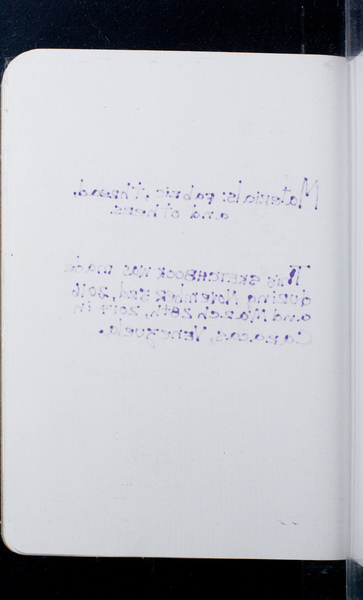 Materials: Fabric, thread,
and others.
This SKETCHBOOK was made
during November 3rd, 2016
and March 28th, 2017 in
Caracas, Venezuela.